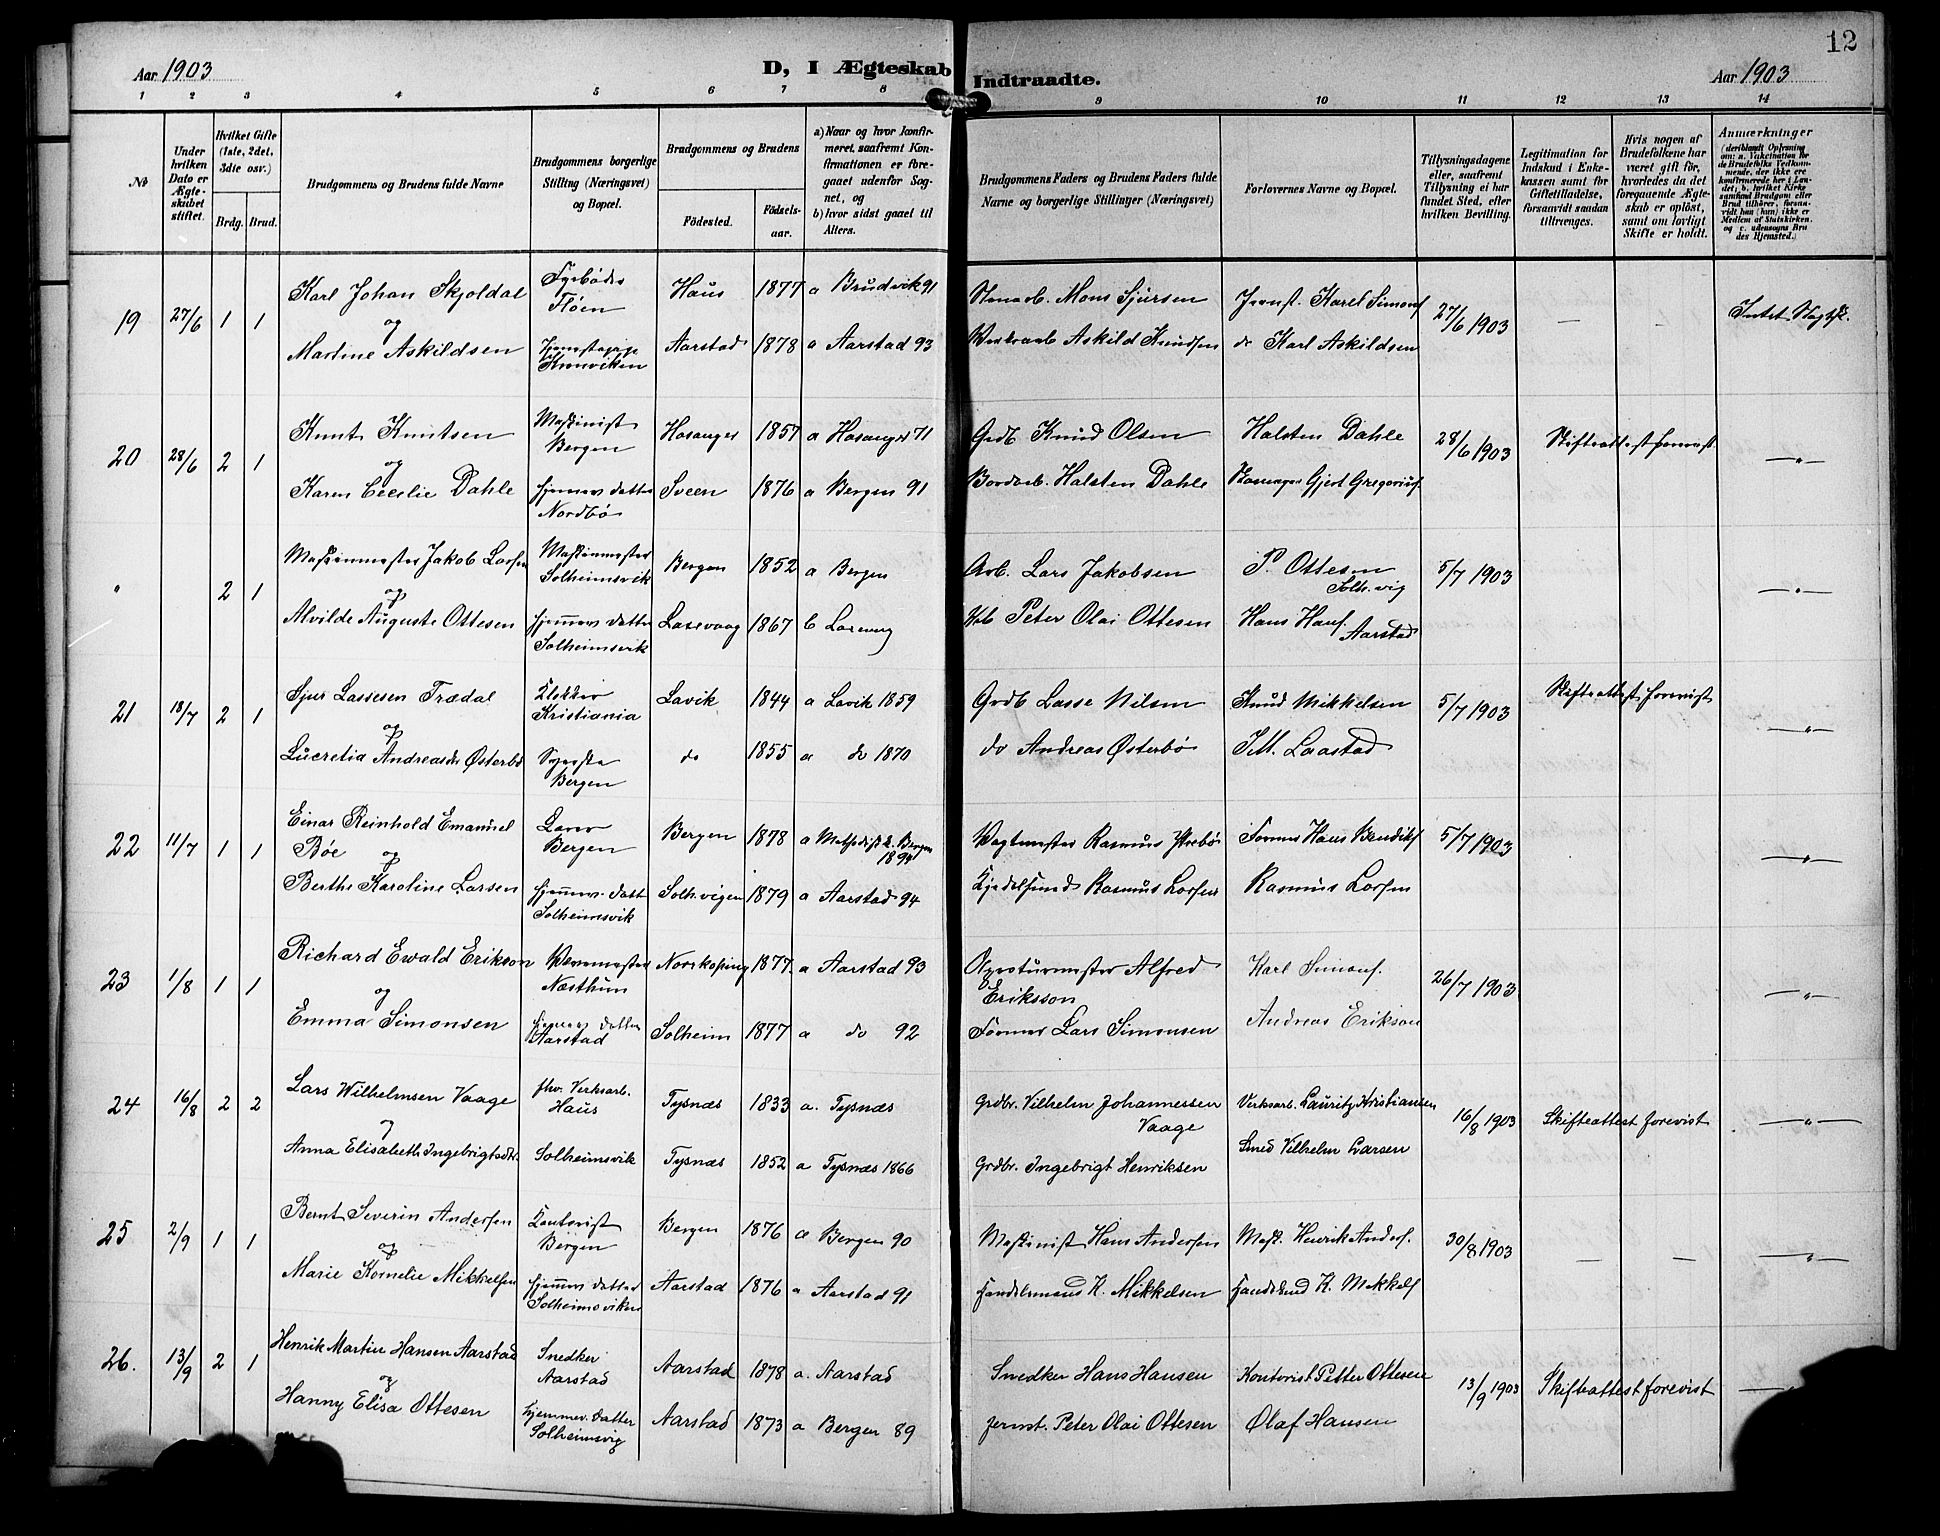 Aar 1903
D, I Ægteskab Indtraadte.
Aar 1903
12
1 2 3 4 5 6 7 8 9 10 11 12 13 14
No
Under hvilken Dato er Ægteskabet stiftet.
Hvilket Gifte (1ste, 2det, 3die osv.)
Brdg. Brud.
Brudgommens og Brudens fulde Navne
Brudgommens borgerlige Stilling (Næringsvei) og Bopæl.
Brudgommens og Brudens
Födested.
Födselsaar.
a) Naar og hvor konfirmeret, saafremt Konfirmationen er foregaaet udenfor Sognet, og
b) hvor sidst gaaet til Alters.
Brudgommens Faders og Brudens Faders fulde Navne og borgerlige Stillinger (Næringsvei)
Forlovernes Navne og Bopæl.
Tillysningsdagene eller, saafremt Tillysning ei har fundet Sted, efter hvilken Bevilling.
Legitimation for Indskud i Enkekassen samt för Giftetilladelse, forsaavidt saadan tiltrænges.
Hvis nogen af Brudefolkene har været gift för, hvorledes da det foregaaende Ægteskab er oplöst, samt om lovligt Skifte er holdt.
Anmærkninger (deriblandt Oplysning om: a. Vakcination for de Brudefolks Vedkommende, der ikke ere konfirmerede her i Landet; b. hvilket Kirkesamfund Brudgom eller Brud tilhører, forsaavidt han (hun) ikke er Medlem af Statskirken, og c. udensogns Brudes Hjemsted.)
19 27/6 1 1 Karl Johan Skjoldal Fyrbøder Haus 1877 a Brudvik 91 Mons Sjursen Karel Simons 27/6 1903 — Intet Slegtsk.
og Fløen
Martine Askildsen Kronviken Aarstad 1878 a Aarstad 93 Askild Knudsen do Karl Askildsen
20 28/6 2 1 Knut Knutsen Maskinist Hosanger 1857 a Hosanger 71 Grdb Knud Olsen Halsten Dahle 28/6 1903 Skifteattest forevist —"—
og Bergen
Karen Cecilie Dahle hjemmev. datter Sveen 1876 a Bergen 91 Halsten Dahle Gjert Gregorius
Nordbø
" 2 1 Maskinmester Jakob Larsen Maskinmester Bergen 1852 a Bergen Arb. Lars Jakobsen P. Ottesen 5/7 1903 —"—
og Solheimsvik Solh.vig
Alvilde Auguste Ottesen hjemmev datter Laxevaag 1867 b Peter Olai Ottesen Hans Hans.
Solheimsvik Aarstad
21 18/7 2 1 Sjur Lassesen Trædal Klokker Lavik 1844 a Lavik 1859 Grdb Lasse Nilsen Knud Mikkelsen 5/7 1903 Skifteattest forevist —"—
og Kristiania
Lucretia Andreasdr Østerbø Syerske do 1855 a do 1870 do Andreas Østerbø Laastad
Bergen
22 11/7 1 1 Einar Reinhold Emanuel Lærer Bergen 1878 a Methodistk. Bergen Vagtmester Rasmus Hans Bendiks 5/7 1903 —"—
Bøe og Bergen 1894
Berthe Karoline Larsen hjemmev. datt Solh.vigen 1879 a Aarstad 94 Kjedelsmed Rasmus Larsen Rasmus Larsen
Solheimsvik
23 1/8 1 1 Richard Ewald Erikson Norrkoping 1877 a Aarstad 93 Alfred Karl Simons. 26/7 1903 —"—
og Næsthun Eriksson
Emma Simonsen hjemmev datter Solheim 1877 a do 92 Former Lars Simonsen Andreas Erikson
Aarstad
24 16/8 2 2 Lars Wilhelmsen Vaage fhv. Verksarb. Tysnæs 1833 a. Tysnæs Grdbr. Vilhelm Johannessen Verksarb. Lauritz Kristiansen 16/8 1903 Skifteattest forevist —"—
og Haus Vaage
Anna Elisabeth Ingebrigtsdtr Solheimsvik Tysnæs 1852 a Tysnæs 1866 Grdbr. Ingebrigt Henriksen Smed Vilhelm Larsen
25 2/9 1 1 Bernt Severin Andersen Kontorist Bergen 1876 a Bergen 90 Maskinist Hans Andersen Mask. Henrik Anders. 30/8 1903 — — —"—
og Bergen
Marie Kornelie Mikkelsen hjemmev datter Aarstad 1876 a Aarstad 91 Handelsmand K. Mikkelsen Handelsmd K. Mikkels
Solheimsviken
26. 13/9 2 1 Henrik Martin Hansen Aarstad Snedker Aarstad 1878 a. Aarstad Snedker Hans Hansen Kontorist Petter Ottesen 13/9 1903 Skifteattest forevist
og Aarstad
Hanny Elisa Ottesen hjemmev. datter Aarstad 1873 a Bergen 89 Jernst. Peter Olai Ottesen Olaf Hansen
Solheimsvig